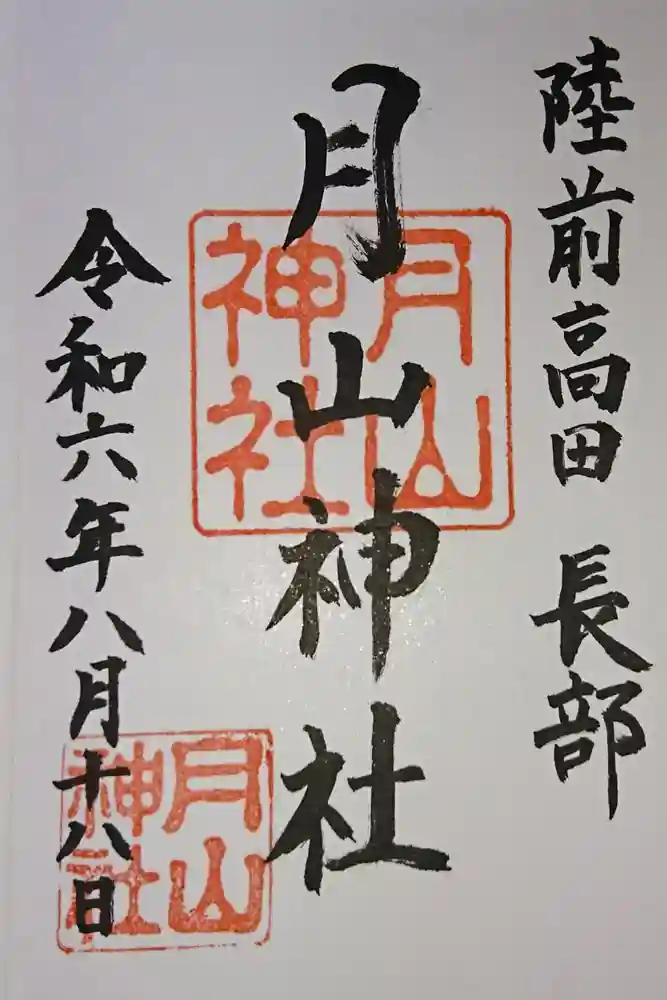 陸前高田 長部
月山神社
令和六年八月十八日
月山
神社
月山
神社